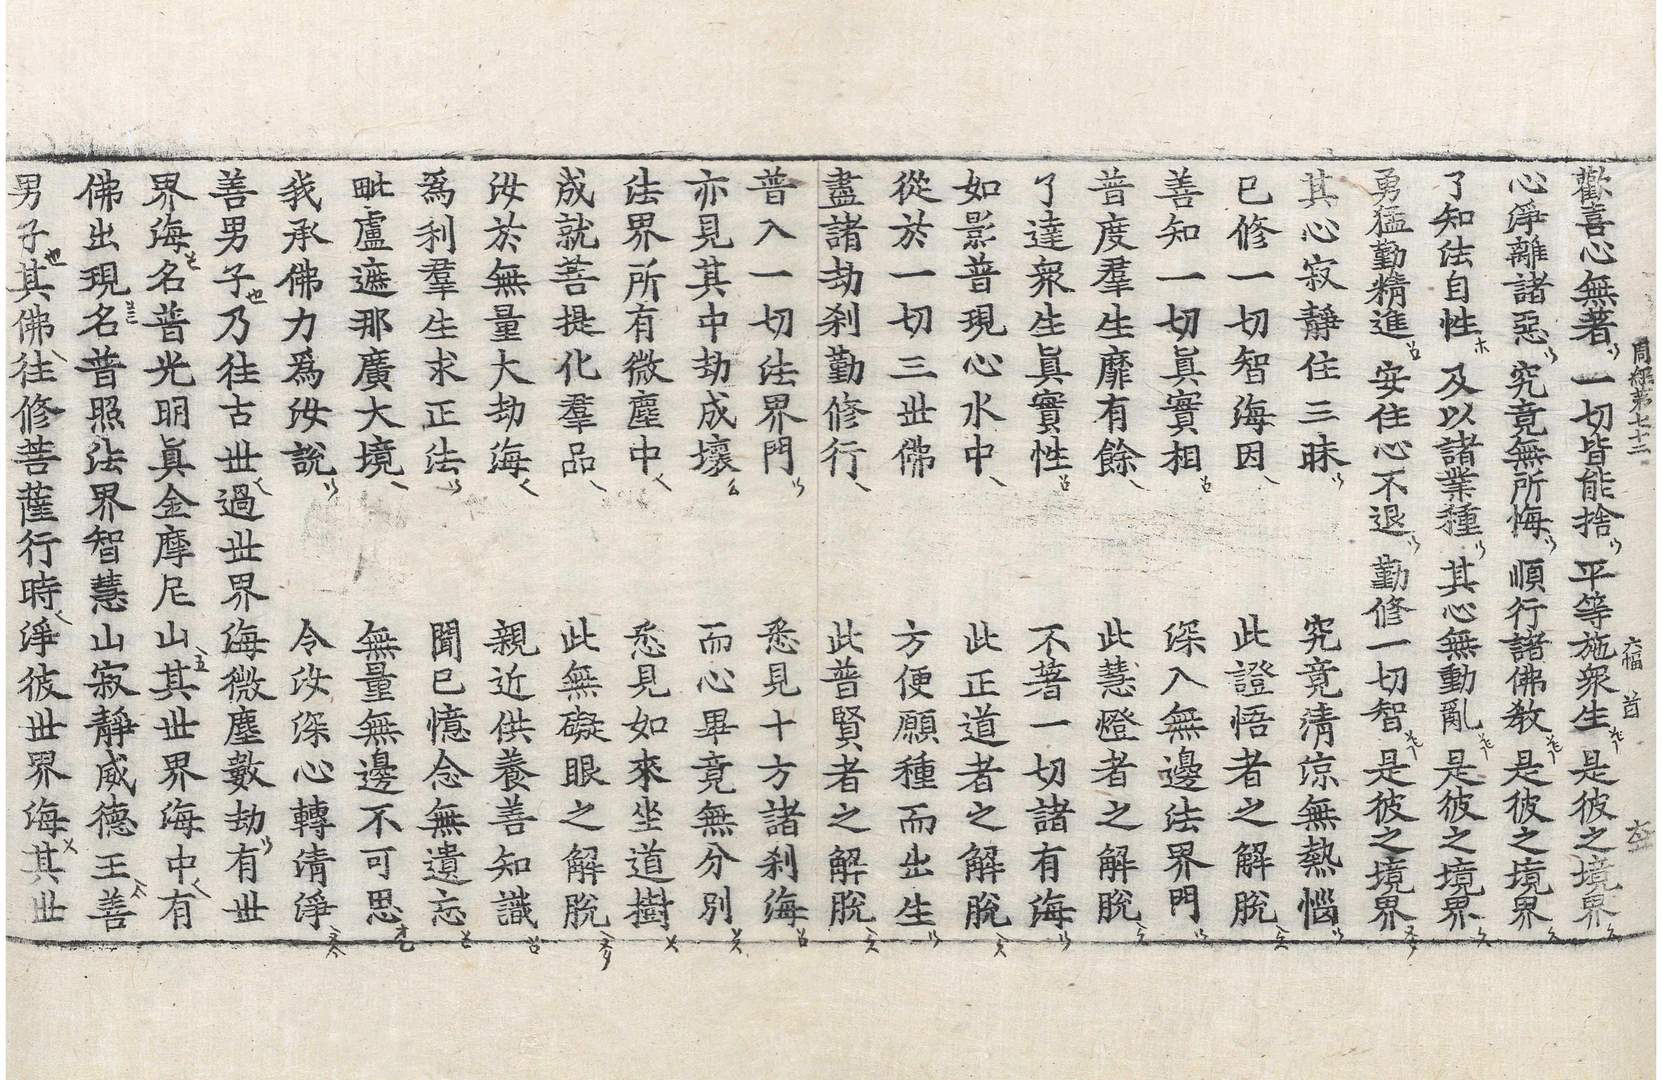 周經第七十二 六幅 首
歡喜心無著 一切皆能捨 平等施眾生 是彼之境界
心淨離諸惡 究竟無所悔 順行諸佛教 是彼之境界
了知法自性 及以諸業種 其心無動亂 是彼之境界
勇猛勤精進 安住心不退 勤修一切智 是彼之境界
其心寂靜住三昧 究竟清涼無熱惱
已修一切智海因 此證悟者之解脫
善知一切真實相 深入無邊法界門
普度羣生靡有餘 此慧燈者之解脫
了達眾生真實性 不著一切諸有海
如影普現心水中 此正道者之解脫
從於一切三世佛 方便願種而出生
盡諸劫剎勤修行 此普賢者之解脫
普入一切法界門 悉見十方諸剎海
亦見其中劫成壞 而心畢竟無分別
法界所有微塵中 悉見如來坐道樹
成就菩提化羣品 此無礙眼之解脫
汝於無量大劫海 親近供養善知識
為利羣生求正法 聞已憶念無遺忘
毗盧遮那廣大境 無量無邊不可思
我承佛力為汝說 令汝深心轉清淨
善男子乃往古世過世界海微塵數劫有世
界海名普光明真金摩尼山其世界海中有
佛出現名普照法界智慧山寂靜威德王善
男子其佛往修菩薩行時淨彼世界海其世